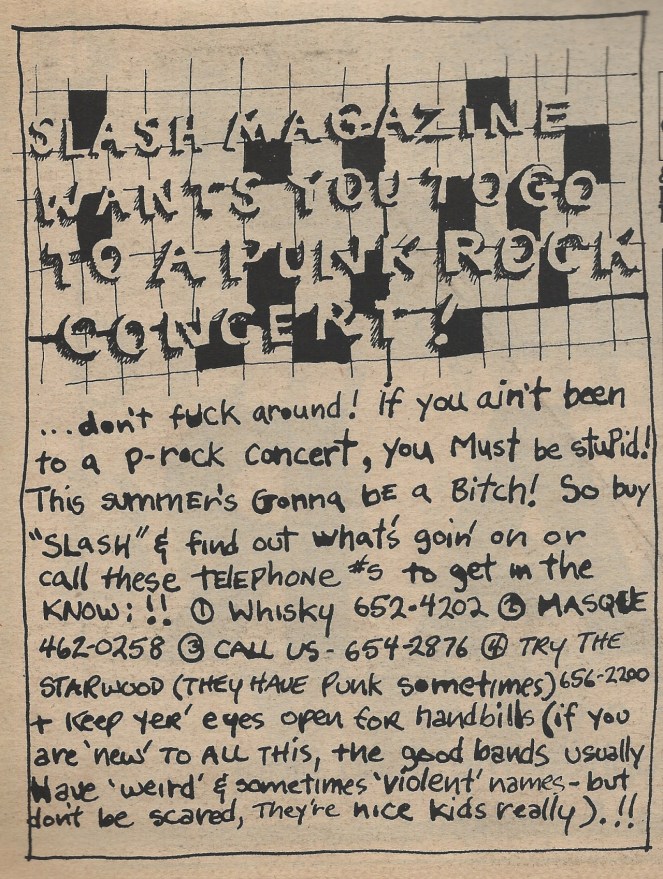 SLASH MAGAZINE
WANTS YOU TO GO
TO A PUNK ROCK
CONCERT!
...don't fuck around! if you ain't been
to a p-rock concert, you Must be stupid!
This summer's Gonna be a Bitch! So buy
"SLASH" & find out what's goin' on or
call these TELEPHONE #s to get in the
KNOW: !! ① Whisky 652-4202 ② MASQUE
462-0258 ③ CALL US - 654-2876 ④ TRY THE
STARWOOD (THEY HAVE Punk sometimes) 656-2200
+ Keep yer' eyes open for handbills (if you
are 'new' TO ALL THIS, the good bands usually
Have 'weird' & sometimes 'violent' names - but
don't be scared, They're nice kids really). !!